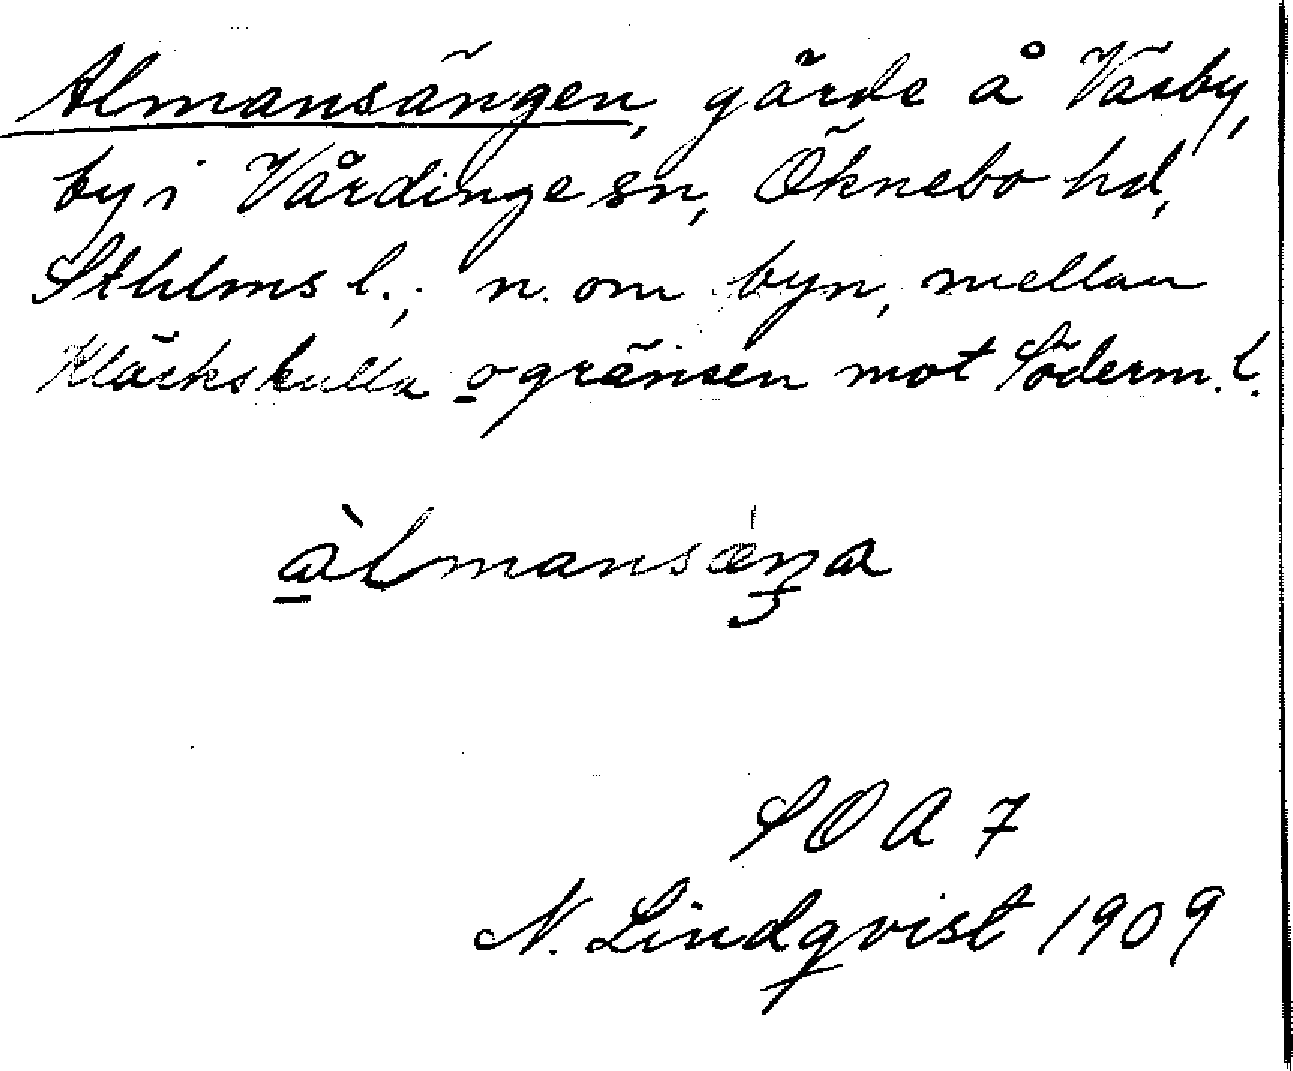 Almansängen, gärde å Väsby,
by i Vårdinge sn, Öknebo hd,
Sthlms l.; n. om byn, mellan
Kläckskulla o gränsen mot Söderm. l.
àlmansǽŋa
S O A 7
N. Lindqvist 1909